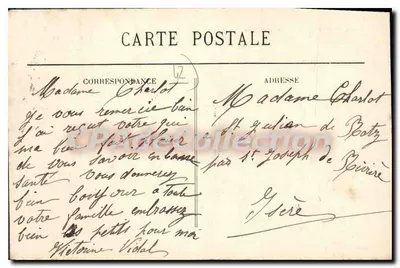 CARTE POSTALE
CORRESPONDANCE
Madame Charlot
Je vous remercie bien
j'ai reçut votre qui
ma bien fait plaisir
de vous savoir en bonne
Santé vous donnerez
bien bonjour a toute
votre famille embrassez
bien les petits pour moi
Victorine Vidal
12
ADRESSE
Madame Charlot
St Julien de Ratz
par St Joseph de Rivière
Isère